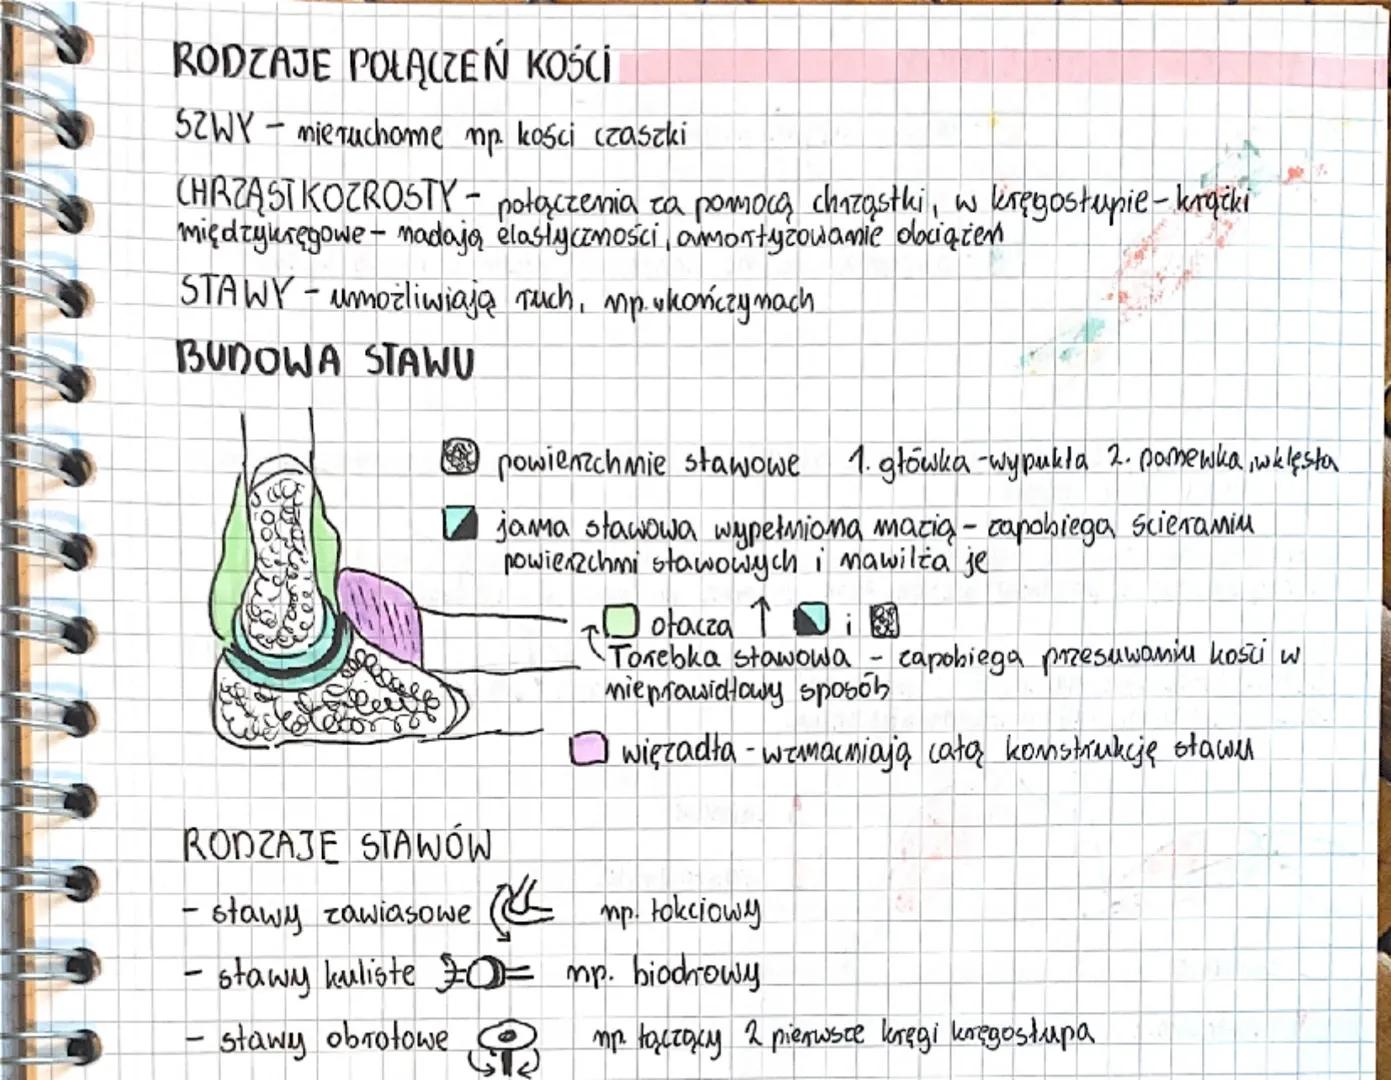 RODZAJE POŁĄCZEŃ KOŚCI
SZWY - nieruchome np. kości czaszki
CHRZĄSTKOZROSTY - połączenia za pomocą chrząstki, w kręgosłupie - krążki
międzykręgowe - nadają elastyczności, amortyzowanie obciążeń
STAWY - umożliwiają ruch, np. w kończynach
BUDOWA STAWU
powierzchnie stawowe 1. główka - wypukła 2. panewka, wklęsła
jama stawowa wypełniona mazią - zapobiega ścieraniu
powierzchni stawowych i nawilża je
otacza ↑ i
Torebka stawowa - zapobiega przesuwaniu kości w
nieprawidłowy sposób
więzadła - wzmacniają całą konstrukcję stawu
RODZAJE STAWÓW
- stawy zawiasowe np. łokciowy
- stawy kuliste np. biodrowy
- stawy obrotowe np. łączący 2 pierwsze kręgi kręgosłupa